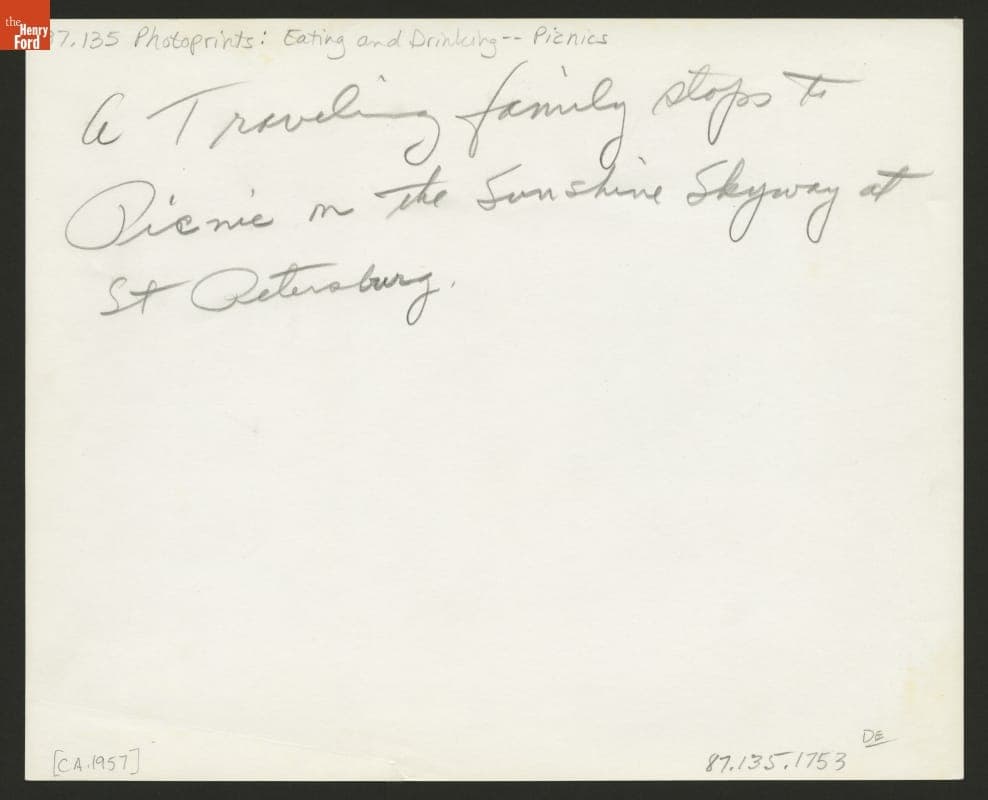 the Henry Ford
87.135 Photoprints: Eating and Drinking -- Picnics
A Traveling family stops to
Picnic on the Sunshine Skyway at
St Petersburg.
[CA.1957]
DE
87.135.1753